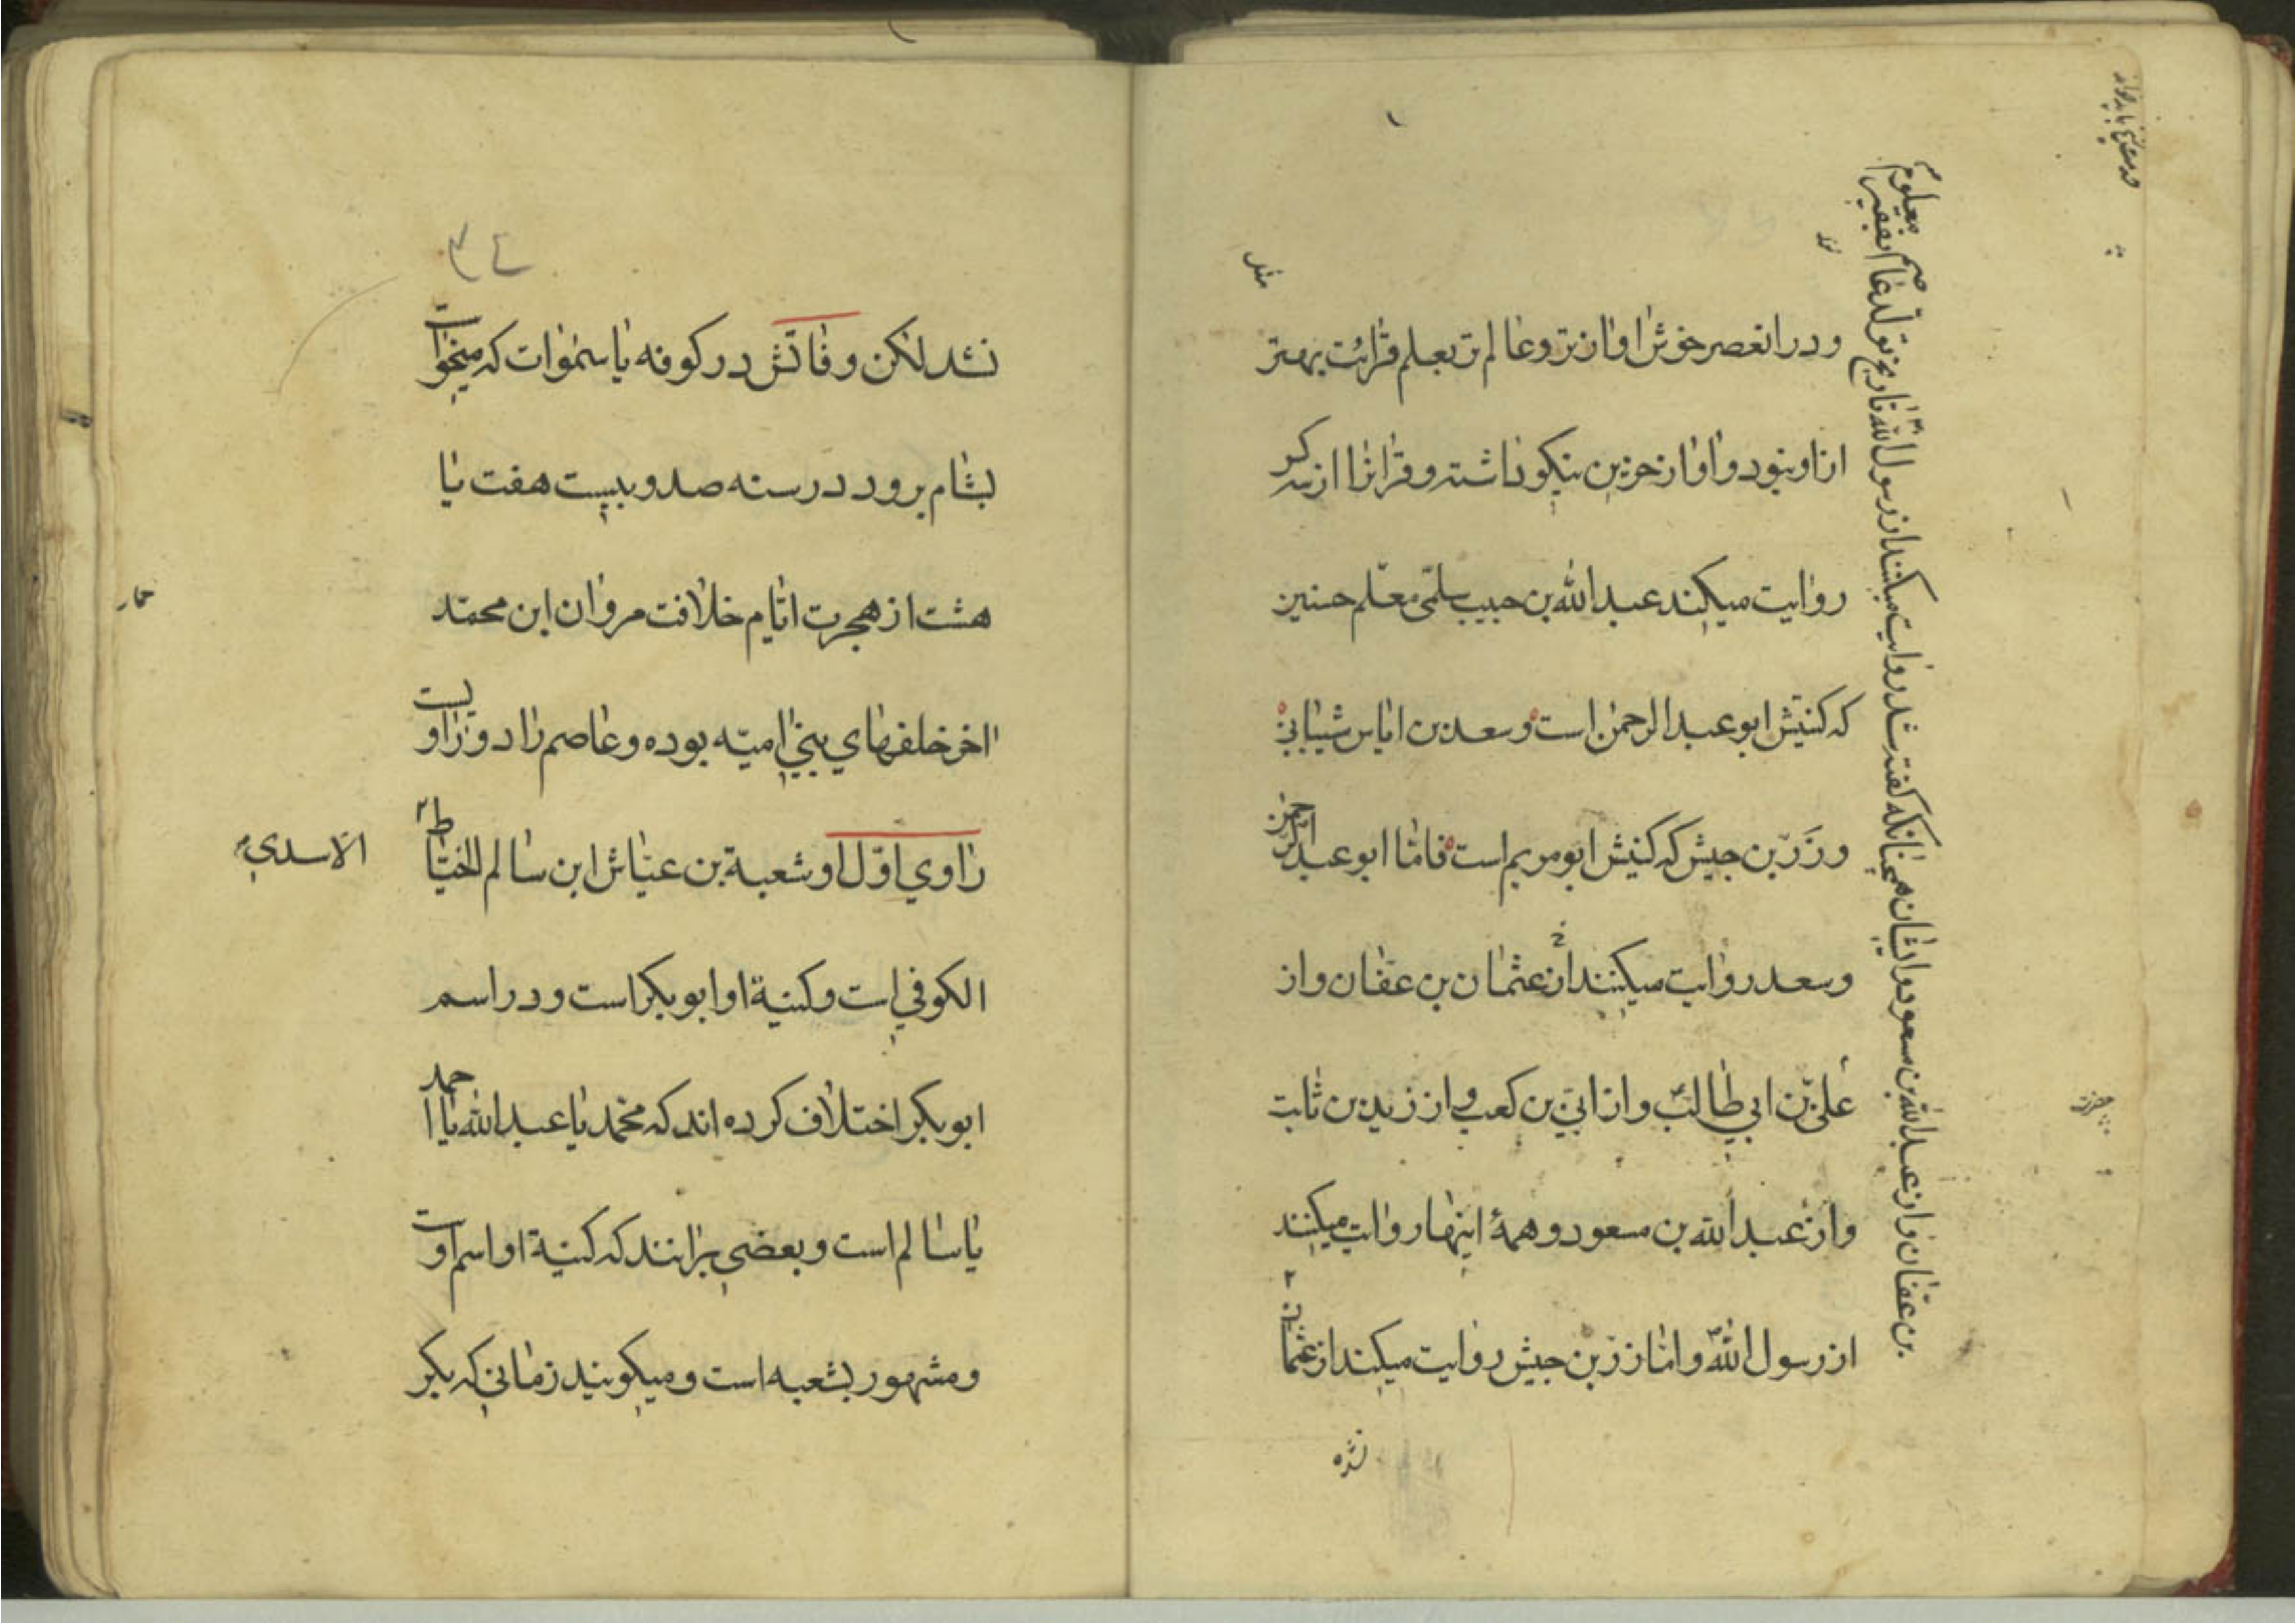 ودر انعصر خوش اوازتر وعالم تر بعلم قرائت بهتر
ازاو نبود واواز حزین نیکو داشته وقرانرا از سه کر
روایت میکند عبدالله بن حبیب سلمی معلم حسنین
که کنیتش ابو عبدالرحمن است وسعد بن ایاس شیبانی
وزر بن حبیش که کنیتش ابو مریم است فامّا ابو عبدالرحمن
وسعد روایت میکنند از عثمان بن عفان واز
علی بن ابی طالب واز ابی بن کعب واز زید بن ثابت
واز عبدالله بن مسعود وهمهٔ اینها روایت میکنند
از رسول الله وامّا زر بن حبیش روایت میکند از عثمان
بن عفان واز عبدالله بن مسعود وایشان همچنانکه گفته شد روایت میکنند از رسول الله تاریخ تولد عاصم بفقیر معلوم
نشد لکن وفاتش در کوفه یا سموات که میخواست
بشام برود در سنه صد وبیست هفت یا
هشت از هجرت ایّام خلافت مروان ابن محمّد
حمار
اخر خلفهای بنی امیّه بوده وعاصم را دو راویست
راوی اوّل او شعبة بن عیّاش ابن سالم الخیّاط
الاسدی
الکوفی است وکنیة او ابو بکر است ودر اسم
ابو بکر اختلاف کرده اند که محمّد یا عبدالله یا احمد
یا سالم است وبعضی برانند که کنیة او اسم اوست
ومشهور بشعبه است ومیکویند زمانی که بکر